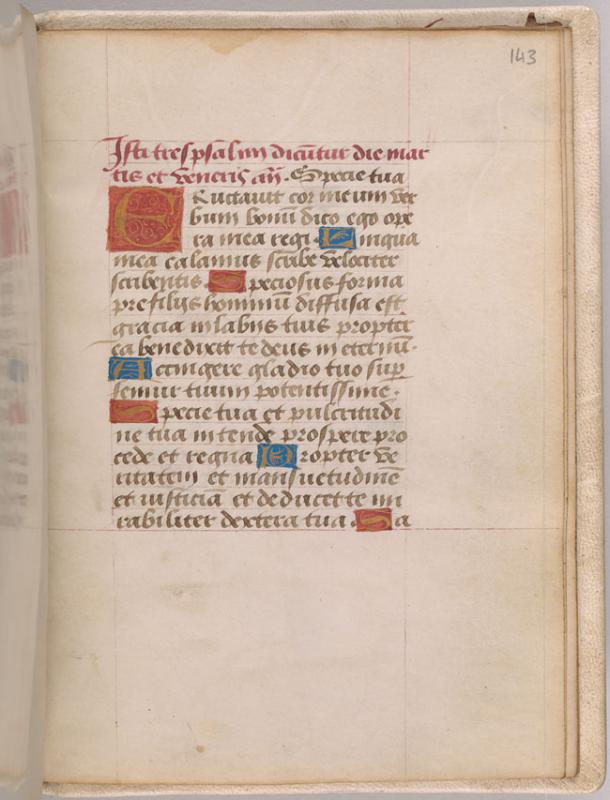 143
Isti tres psalmi dicūtur die mar
tis et veneris añ. Specie tua
Eructauit cor meum ver
bum bonū dico ego ope
ra mea regi. Lingua
mea calamus scribe velociter
scribentis. Speciosus forma
pre filijs hominū diffusa est
gracia in labijs tuis propter
ea benedixit te deus in eternū.
Accingere gladio tuo sup̱
femur tuum potentissime.
Specie tua et pulcritudi
ne tua intende prospere pro
cede et regna Propter ve
ritatem et mansuetudinē
et iusticiā et deducet te mi
rabiliter dextera tua. Sa